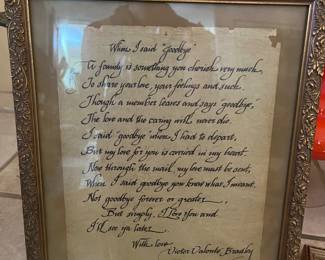 When I said "Goodbye"
A family is something you cherish very much,
To share your love, your feelings and such.
Though a member leaves and says "goodbye,"
The love and the caring will never die.
I said "goodbye" when I had to depart,
But my love for you is carried in my heart.
Now through the mail, my love must be sent,
When I said goodbye you knew what I meant.
Not goodbye forever or greater,
But simply, I love you and
I'll see ya later.
With love,
Victor Bradley